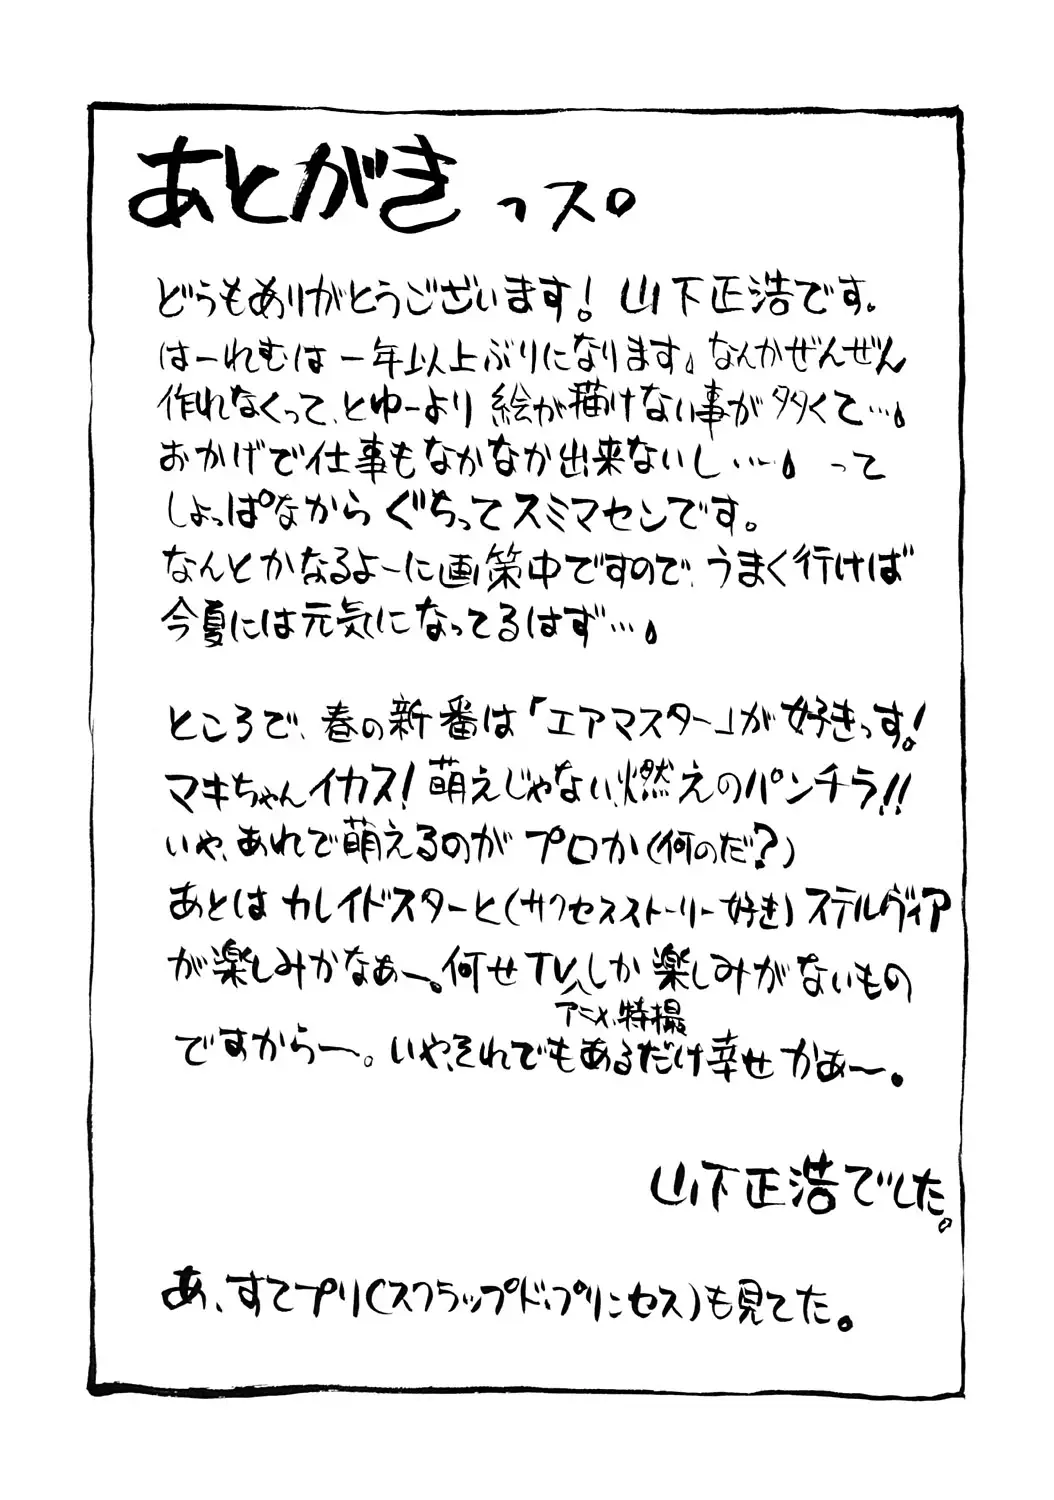 あとがきっス。
どうもありがとうございます! 山下正浩です。
はーれむは一年以上ぶりになります。なんかぜんぜん
作れなくって、とゆーより絵が描けない事が多くて…。
おかげで仕事もなかなか出来ないし…。って
しょっぱなからぐちってスミマセンです。
なんとかなるよーに画策中ですので、うまく行けば
今夏には元気になってるはず…。
ところで、春の新番は「エアマスター」が好きっす!
マキちゃんイカス! 萌えじゃない、燃えのパンチラ!!
いや、あれで萌えるのがプロか(何のだ?)
あとはカレイドスターと(サクセスストーリー好き)ステルヴィア
が楽しみかなぁー。何せTVしか楽しみがないもの
アニメ、特撮
ですからー。いや、それでもあるだけ幸せかぁ〜。
山下正浩でした。
あ、すてプリ(スクラップド・プリンセス)も見てた。